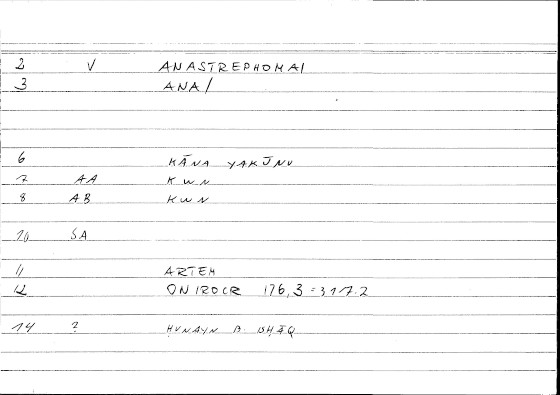 2 V ANASTREPHOMAI
3 ANA/
6 KĀNA YAKŪNU
7 AA KWN
8 AB KWN
10 SA
11 ARTEM
12 ONIROCR 176,3 = 317.2
14 ? ḤUNAYN B. ISḤĀQ